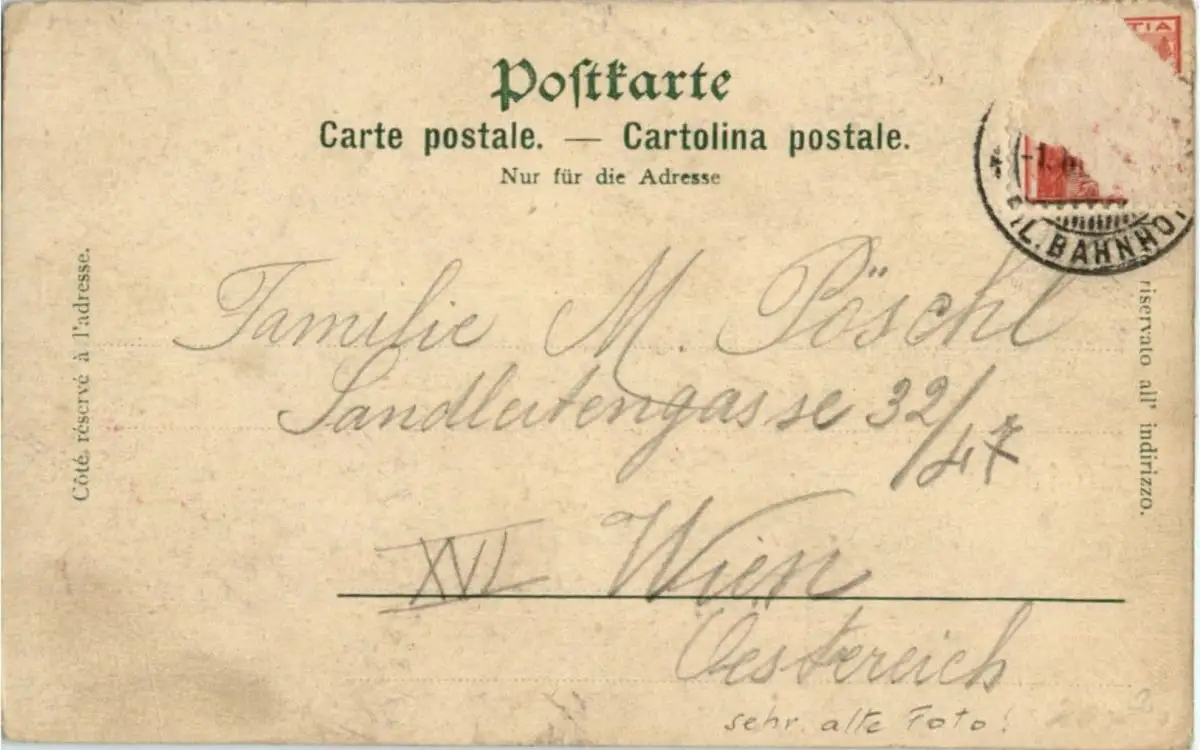 Postkarte
Carte postale. — Cartolina postale.
Nur für die Adresse
TIA
L. BAHNHO
Côté réservé à l'adresse.
riservato all' indirizzo.
Familie M. Pöschl
Sandleitengasse 32/47
XVI Wien
Oesterreich
sehr alte Foto!